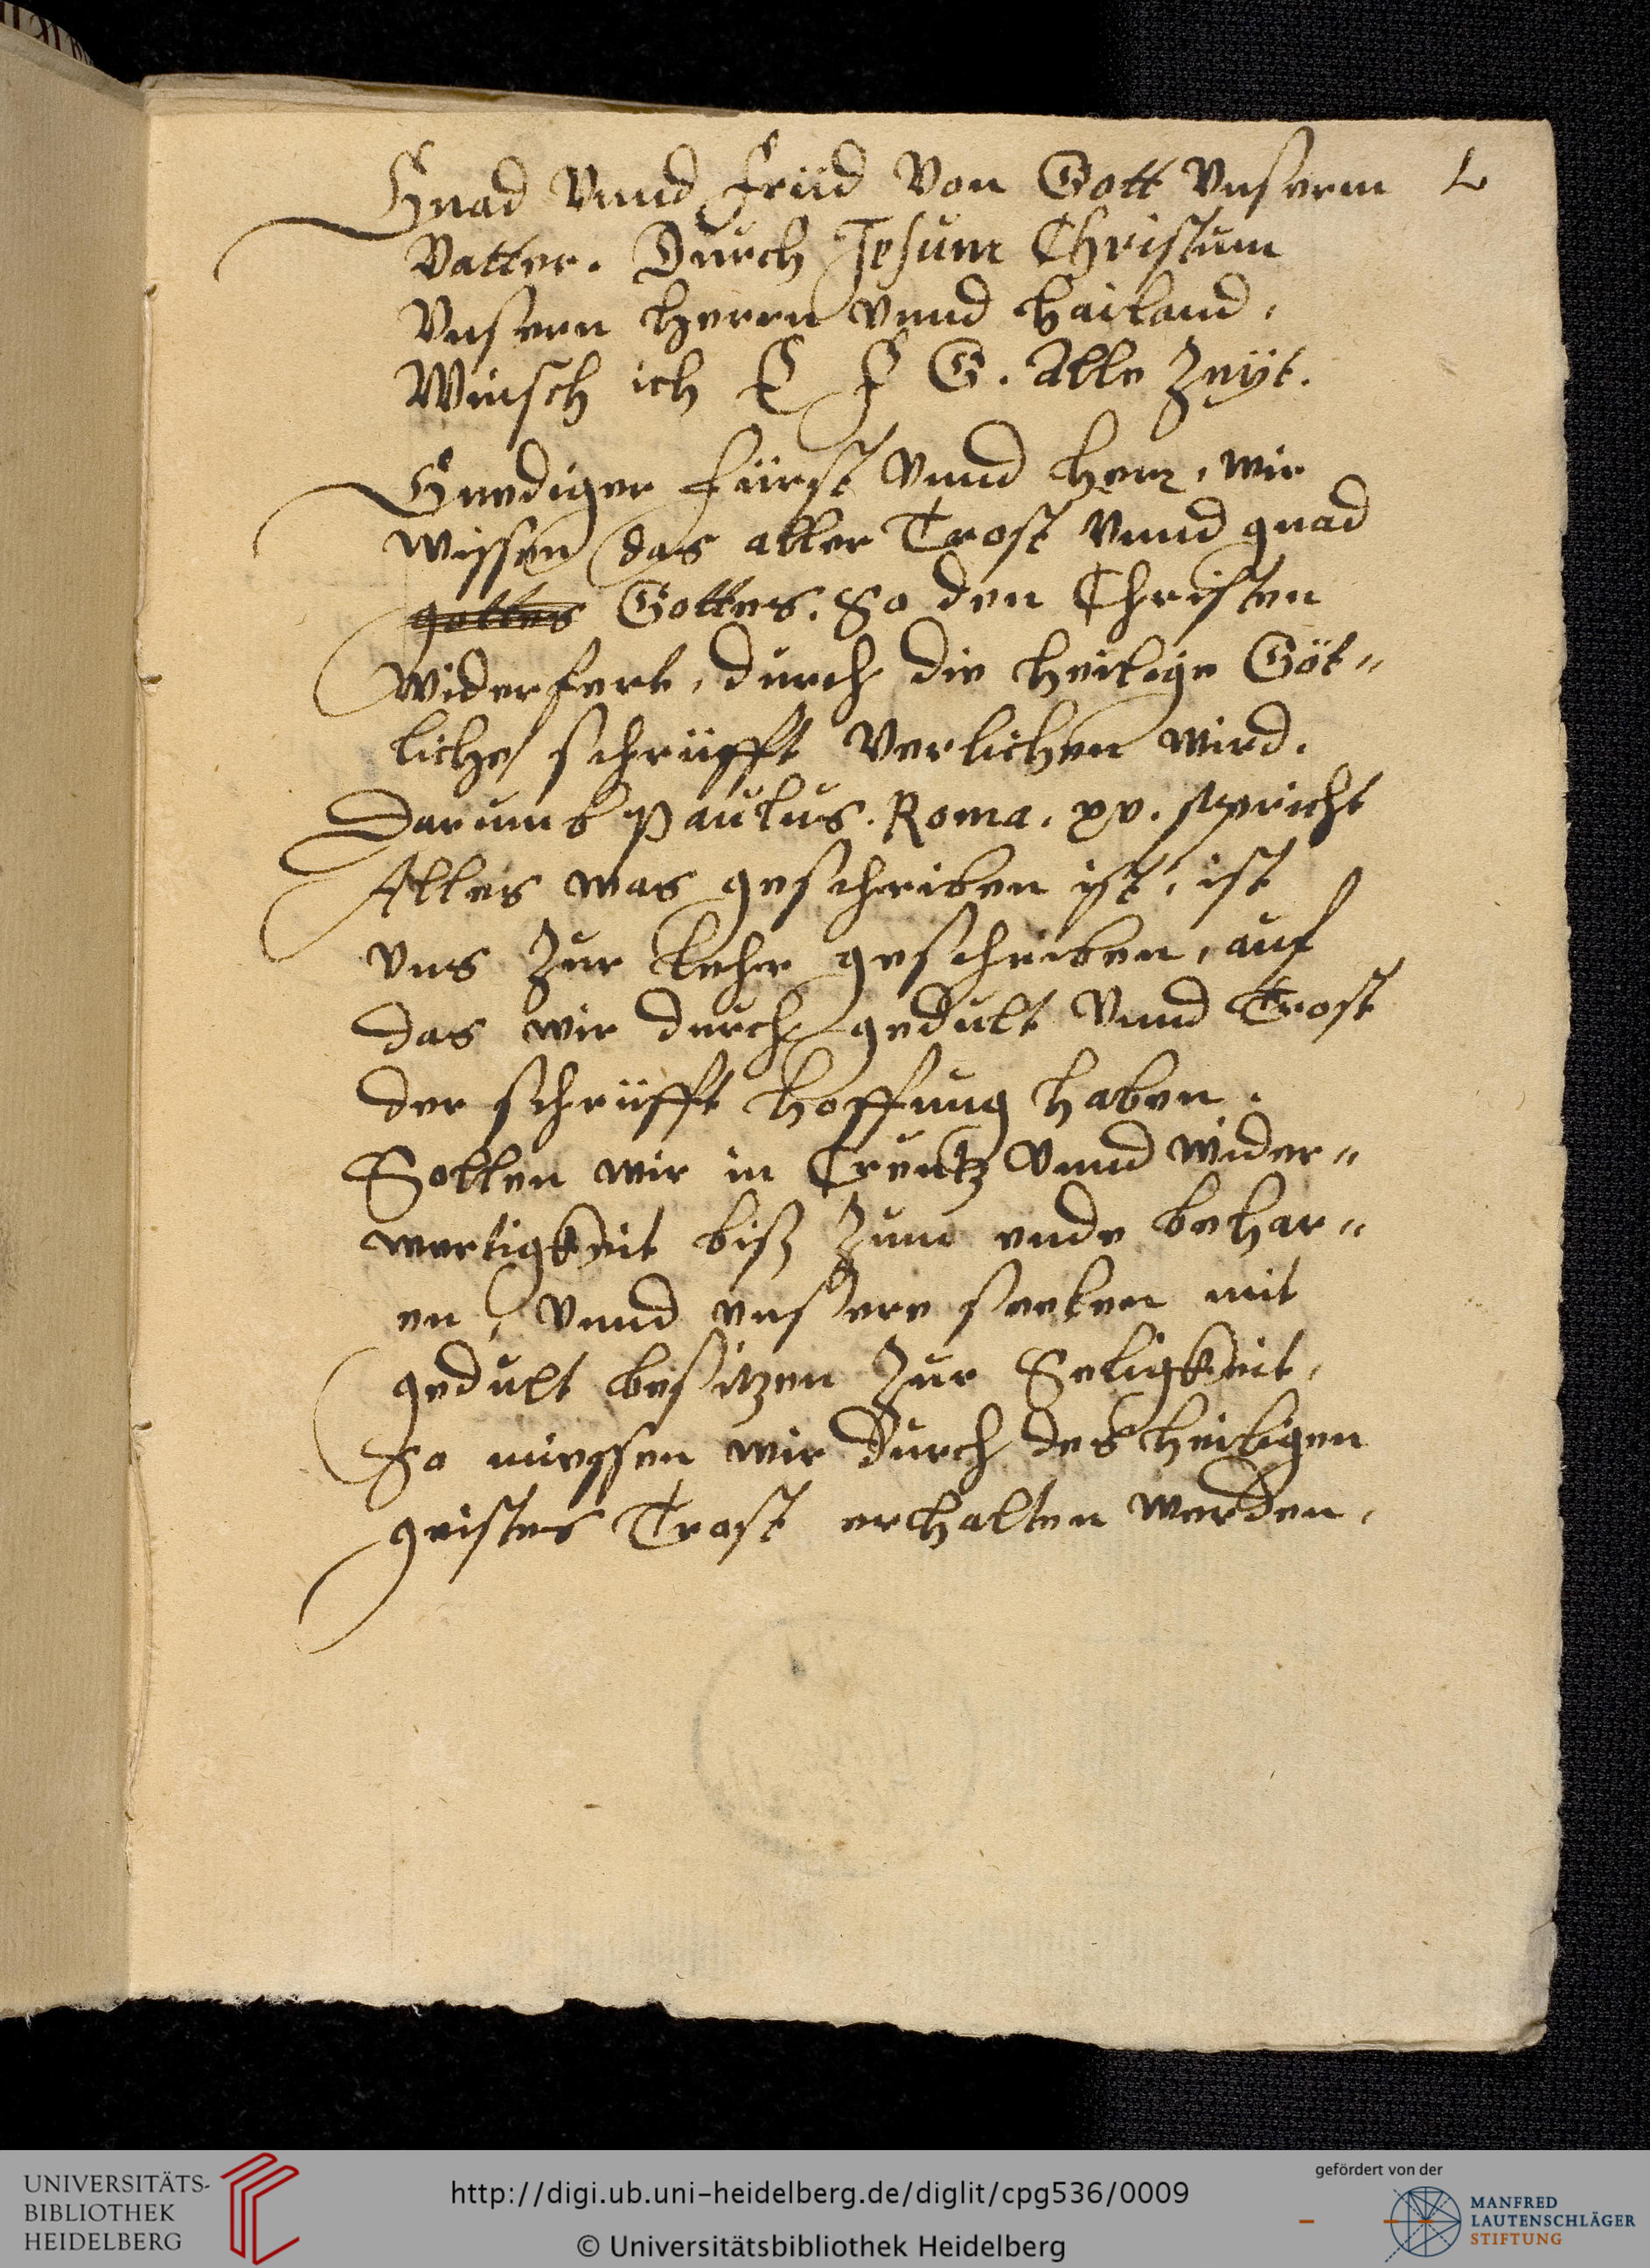 Gnad Vnnd früd Von Gott Vnserm
Vatter. Durch Jesum Christum
Vnsern herrn vnnd hailand,
Winsch ich E F G. Alle Zeÿt.
Gnediger fürst Vnnd herr, wir
wissen das aller Trost Vnnd gnad
gottes Gottes. So den Christen
widerfert, durch die heilige Göt„
liche schrüfft Verlichen wird.
Darumb Paulus. Roma. xv. spricht
Alles was geschriben ist, ist
vns Zur lehr geschriben, auf
das wir durch gedult Vnnd Trost
der schrüfft hoffung haben.
Sollen wir in Creutz Vnnd wider„
wertigkeit biß Zum ende behar„
en, Vnnd vnsere seelen mit
gedult besitzen Zur Seligkeit,
So miessen wir durch des heiligen
geistes Trost erhalten werden,
UNIVERSITÄTS-
BIBLIOTHEK
HEIDELBERG
http://digi.ub.uni-heidelberg.de/diglit/cpg536/0009
© Universitätsbibliothek Heidelberg
gefördert von der
MANFRED
LAUTENSCHLÄGER
STIFTUNG